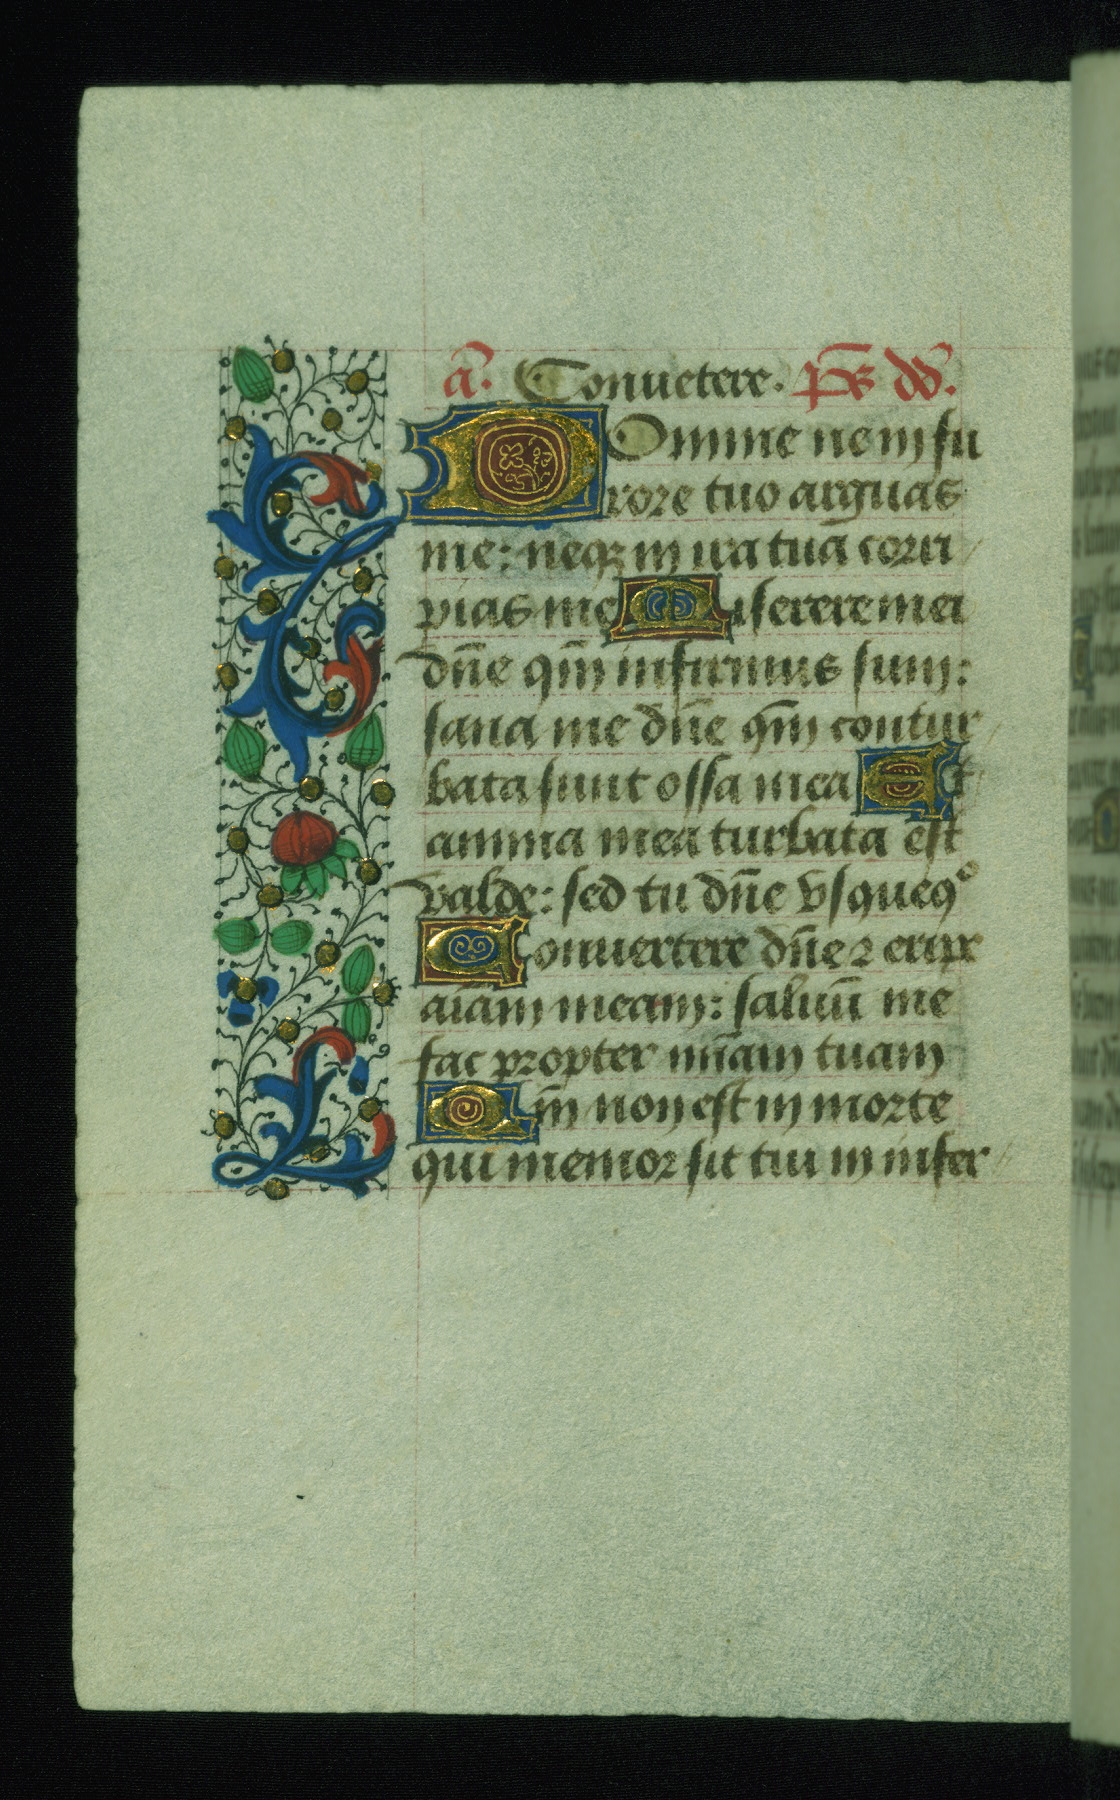 a͞. Conuetere. p̄s dd̄.
DOmine ne in fu
rore tuo arguas
me: neqꝫ in ira tua corri
pias me Miserere mei
dn̄e qm̄ infirmus sum:
sana me dn̄e qm̄ contur
bata sunt ossa mea Et
anima mea turbata est
valde: sed tu dn̄e vsquequo
Conuertere dn̄e ⁊ eripe
aīam meam: saluū me
fac propter mīam tuam
Qm̄ non est in morte
qui memor sit tui in infer